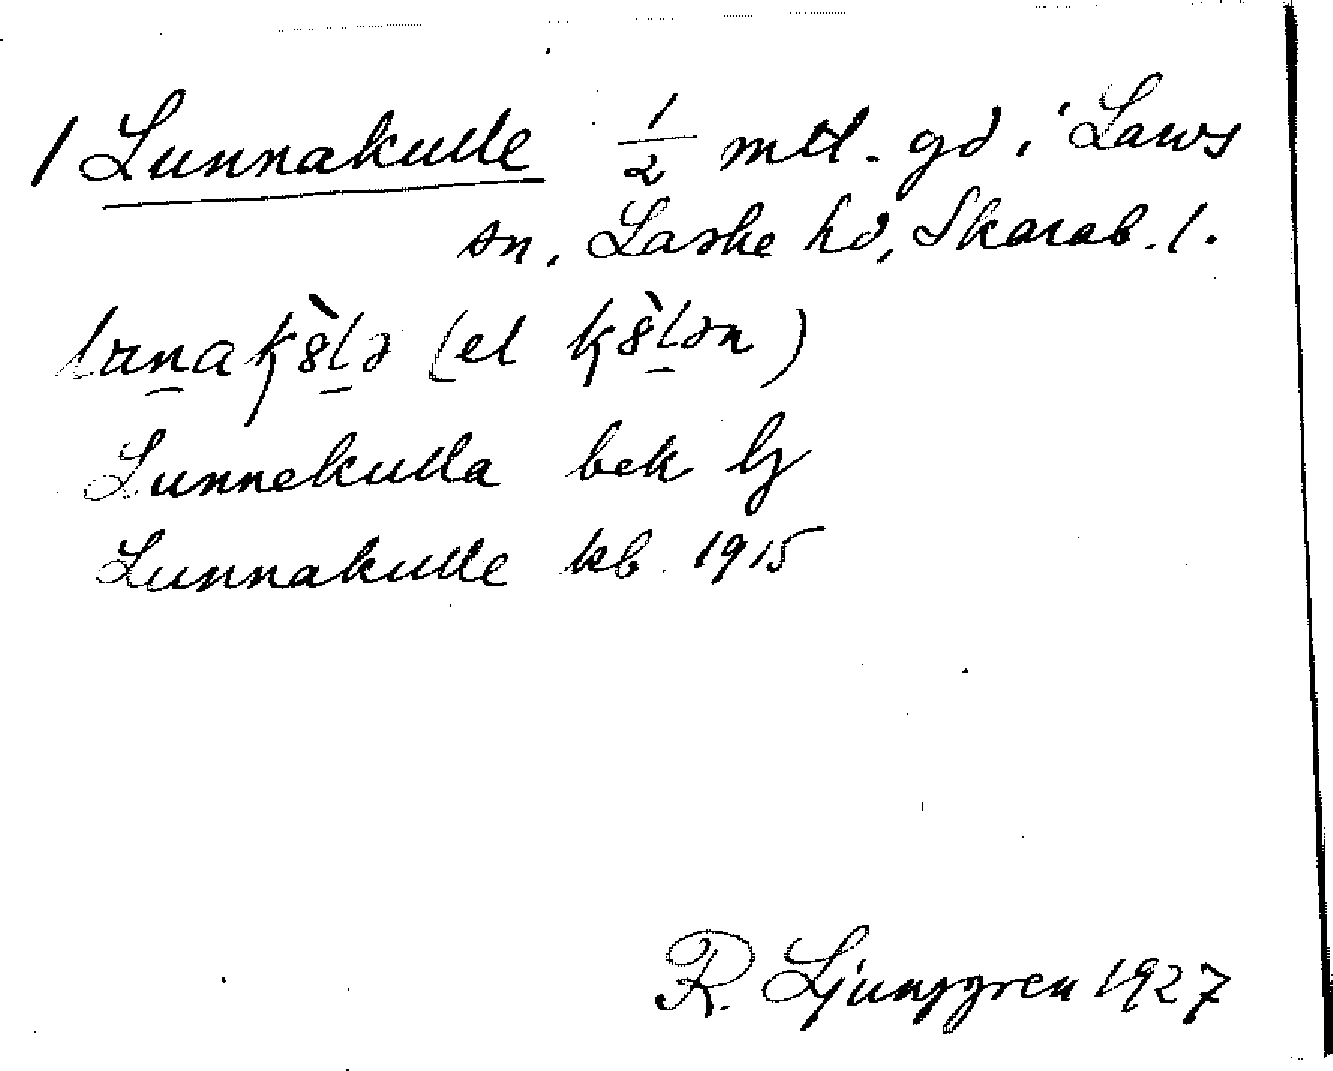 1 Lunnakulle 1/2 mtl. gd i Laws
sn, Laske hd, Skarab. l.
(el
Lunnekulla bek lj
Lunnakulle kb. 1915
R. Ljunggren 1927